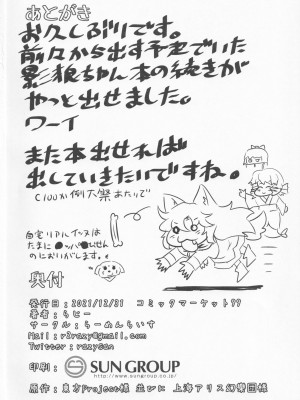 あとがき
お久しぶりです。
前々から出す予定でいた
影狼ちゃん本の続きが
やっと出せました。
ワーイ
また本出せれば
出していきたいですね。
C100か例大祭あたりで
自宅リアルイッヌは
たまに●ッパ●びせん
のにおいがします。
奥付
発行日：2021/12/31 コミックマーケット99
著者：らビー
サークル：らーめんらいす
Mail：r2razy@gmail.com
Twitter：razysan
印刷：SUN GROUP
http://www.sungroup.co.jp/
原作：東方Project様 並びに 上海アリス幻樂団様